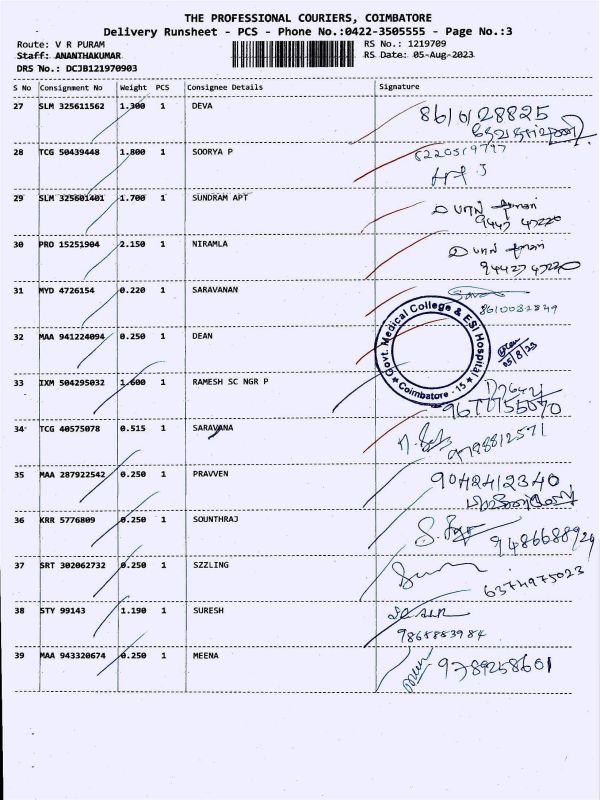 THE PROFESSIONAL COURIERS, COIMBATORE
Delivery Runsheet - PCS - Phone No.:0422-3505555 - Page No.:3
Route: V R PURAM
RS No.: 1219709
Staff: ANANTHAKUMAR
RS Date: 05-Aug-2023
DRS No.: DCJB121970903
S No Consignment No Weight PCS Consignee Details Signature
27 SLM 325611562 1.300 1 DEVA
28 TCG 50439448 1.800 1 SOORYA P
29 SLM 325601401 1.700 1 SUNDRAM APT
30 PRO 15251904 2.150 1 NIRAMLA
94427 47220
31 MYD 4726154 0.220 1 SARAVANAN
8610082849
32 MAA 941224094 0.250 1 DEAN
Govt. Medical College & ESI Hospital
Coimbatore - 15
05/8/23
33 IXM 504295032 1.600 1 RAMESH SC NGR P
34 TCG 40575078 0.515 1 SARAVANA
9798812571
35 MAA 287922542 0.250 1 PRAVVEN
9042412340
36 KRR 5776809 0.250 1 SOUNTHRAJ
37 SRT 302062732 0.250 1 SZZLING
6374975023
38 STY 99143 1.190 1 SURESH
39 MAA 943320674 0.250 1 MEENA
9789258601